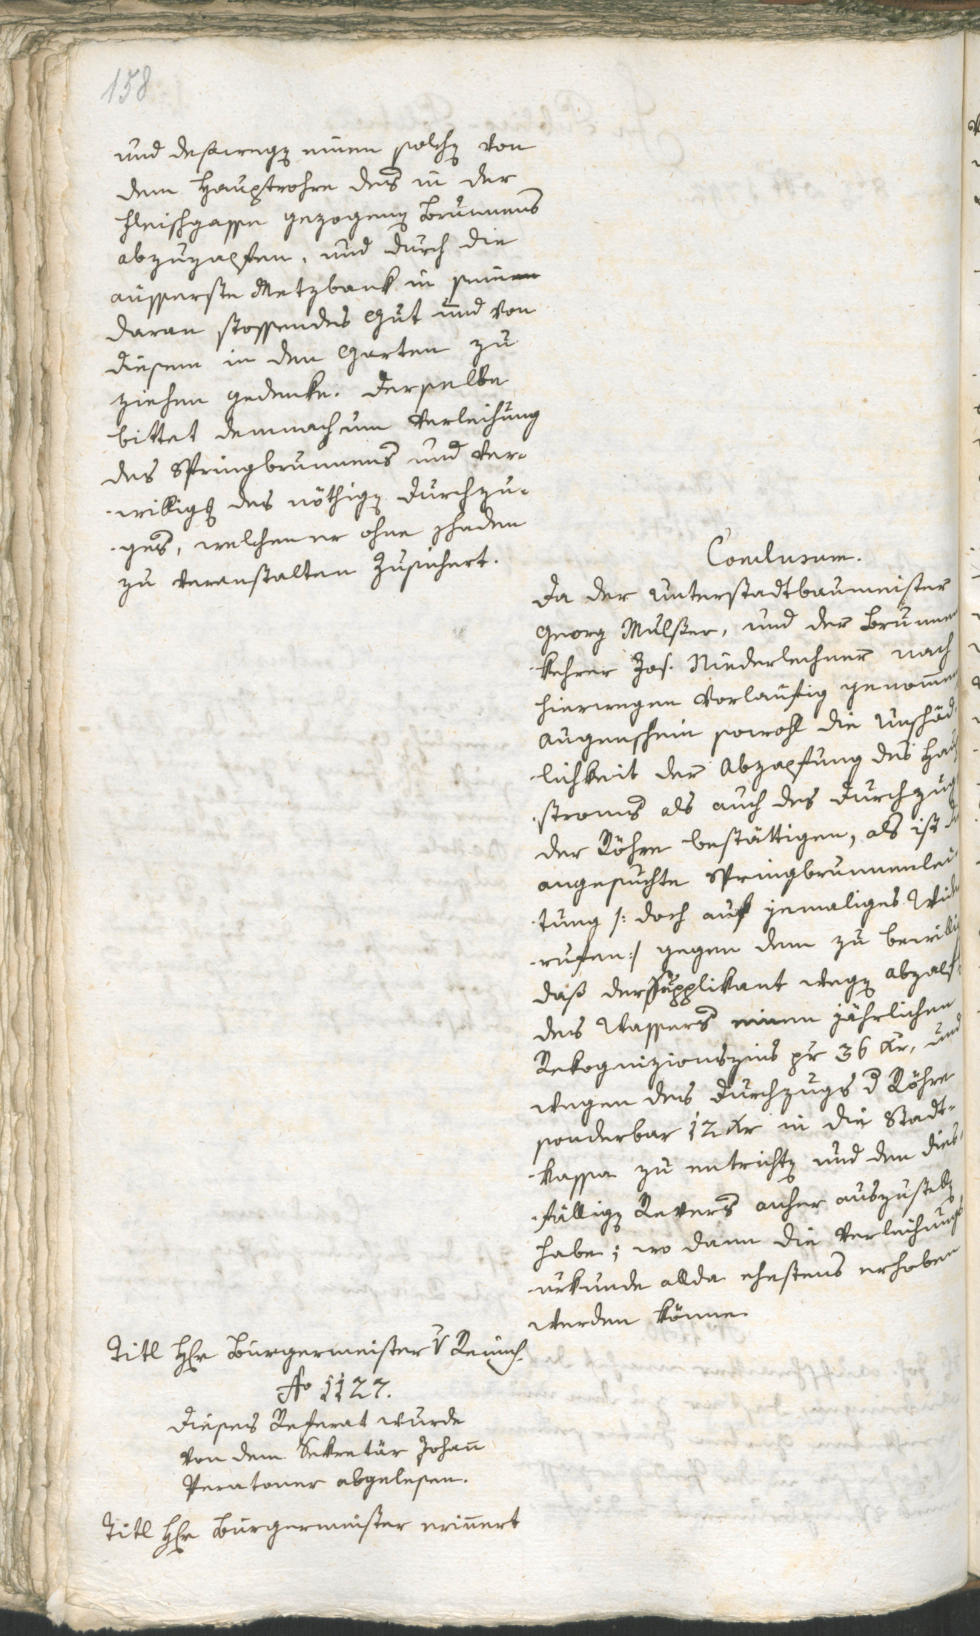 158
und deswegen einen solchen von
dem Hauptrohre des in der
Fleischgasse gezogenen Brunnens
abzuzapfen, und durch die
äusserste Metzbank in seinen
daran stossendes Gut und von
diesem in den Garten zu
ziehen gedenke. Derselbe
bittet demnach um Verleihung
des Springbrunnens und Ver-
willigg des nöthigen Durchzu-
ges, welchen er ohne Schaden
zu veranstalten zusichert.
Conclusum.
Da der Unterstadtbaumeister
Georg Mulßer, und der Brunnen
kehrer Jos. Niederlechner nach
hierwegen vorläufig genommen
Augenschein sowohl die Unschäd-
lichkeit der Abzapfung des
stroms als auch des Durchzug
der Röhre bestättigen, als ist
angesuchte Springbrunnenlei
tung /: doch auf jemaliges Wider
rufen :/ gegen dem zu bewilli
daß der Supplikant wegen
des Wassers einen jährlichen
Rekognizionszins pr 36 Kr, und
wegen des Durchzugs d Röhre
sonderbar 12 Kr in die Stadt-
kassa zu entrichten und den dies
fälligen Revers anher auszustellen
habe; wo dann die Verleihungs
urkunde allda ehestens erhoben
werden könne.
Titl Hr Bürgermeister v
No 1127.
Dieses Referat wurde
von dem Sekretär Johann
Peratoner abgelesen.
Titl Hr Bürgermeister erinnert